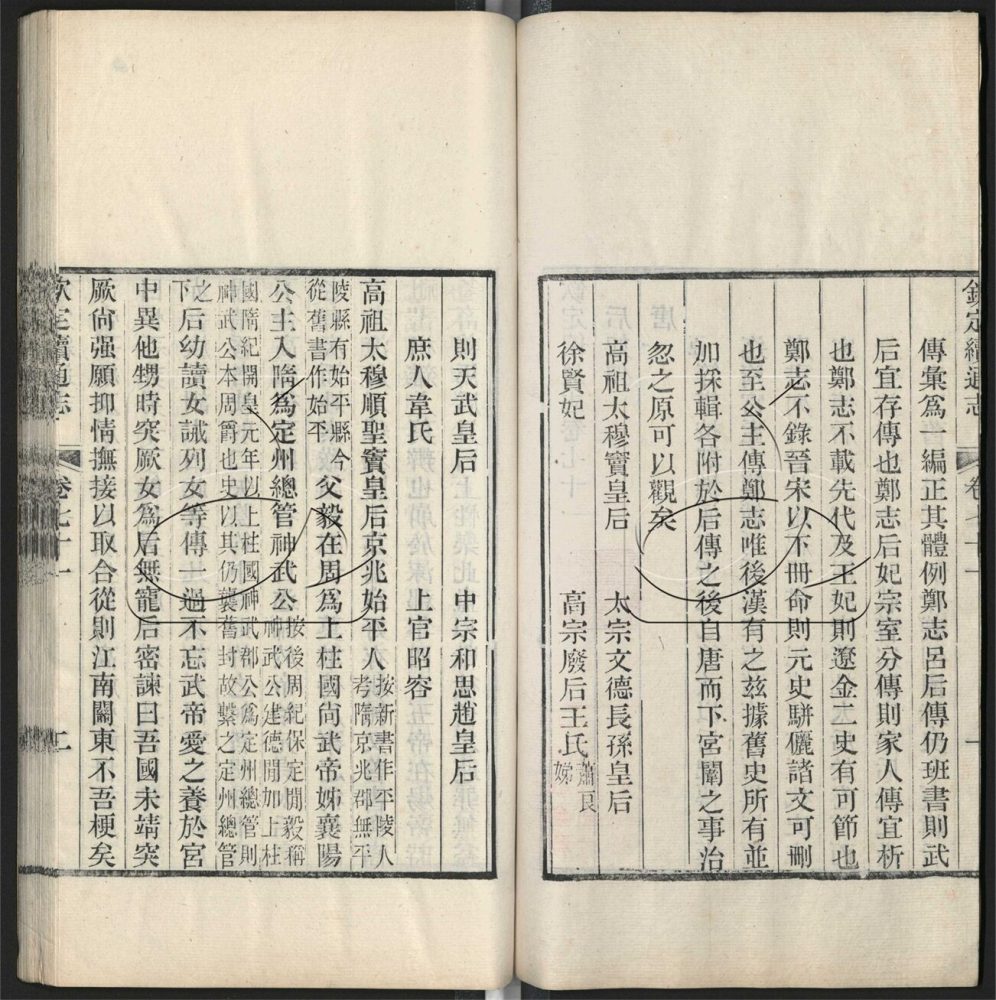 欽定續通志
卷七十一
一
傳彙爲一編正其體例鄭志呂后傳仍班書則武
后宜存傳也鄭志后妃宗室分傳則家人傳宜析
也鄭志不載先代及王妃則遼金二史有可節也
鄭志不錄晉宋以下冊命則元史駢儷諸文可刪
也至公主傳鄭志唯後漢有之兹據舊史所有並
加採輯各附於后傳之後自唐而下宮闈之事治
忽之原可以觀矣
高祖太穆竇皇后 太宗文德長孫皇后
徐賢妃 高宗廢后王氏 蕭良
娣
則天武皇后 中宗和思趙皇后
庶人韋氏 上官昭容
高祖太穆順聖竇皇后京兆始平人 按新書作平陵人
考隋京兆郡無平
陵縣有始平縣今
從舊書作始平
父毅在周爲上柱國尚武帝姊襄陽
公主入隋爲定州總管神武公 按後周紀保定閒毅稱
神武公建德閒加上柱
國隋紀開皇元年以上柱國神武郡公爲定州總管則
神武公本周爵也史以其仍襲舊封故繫之定州總管
之
下
后幼讀女誡列女等傳一過不忘武帝愛之養於宮
中異他甥時突厥女爲后無寵后密諫曰吾國未靖突
厥尚强願抑情撫接以取合從則江南關東不吾梗矣
欽定續通志
卷七十一
二